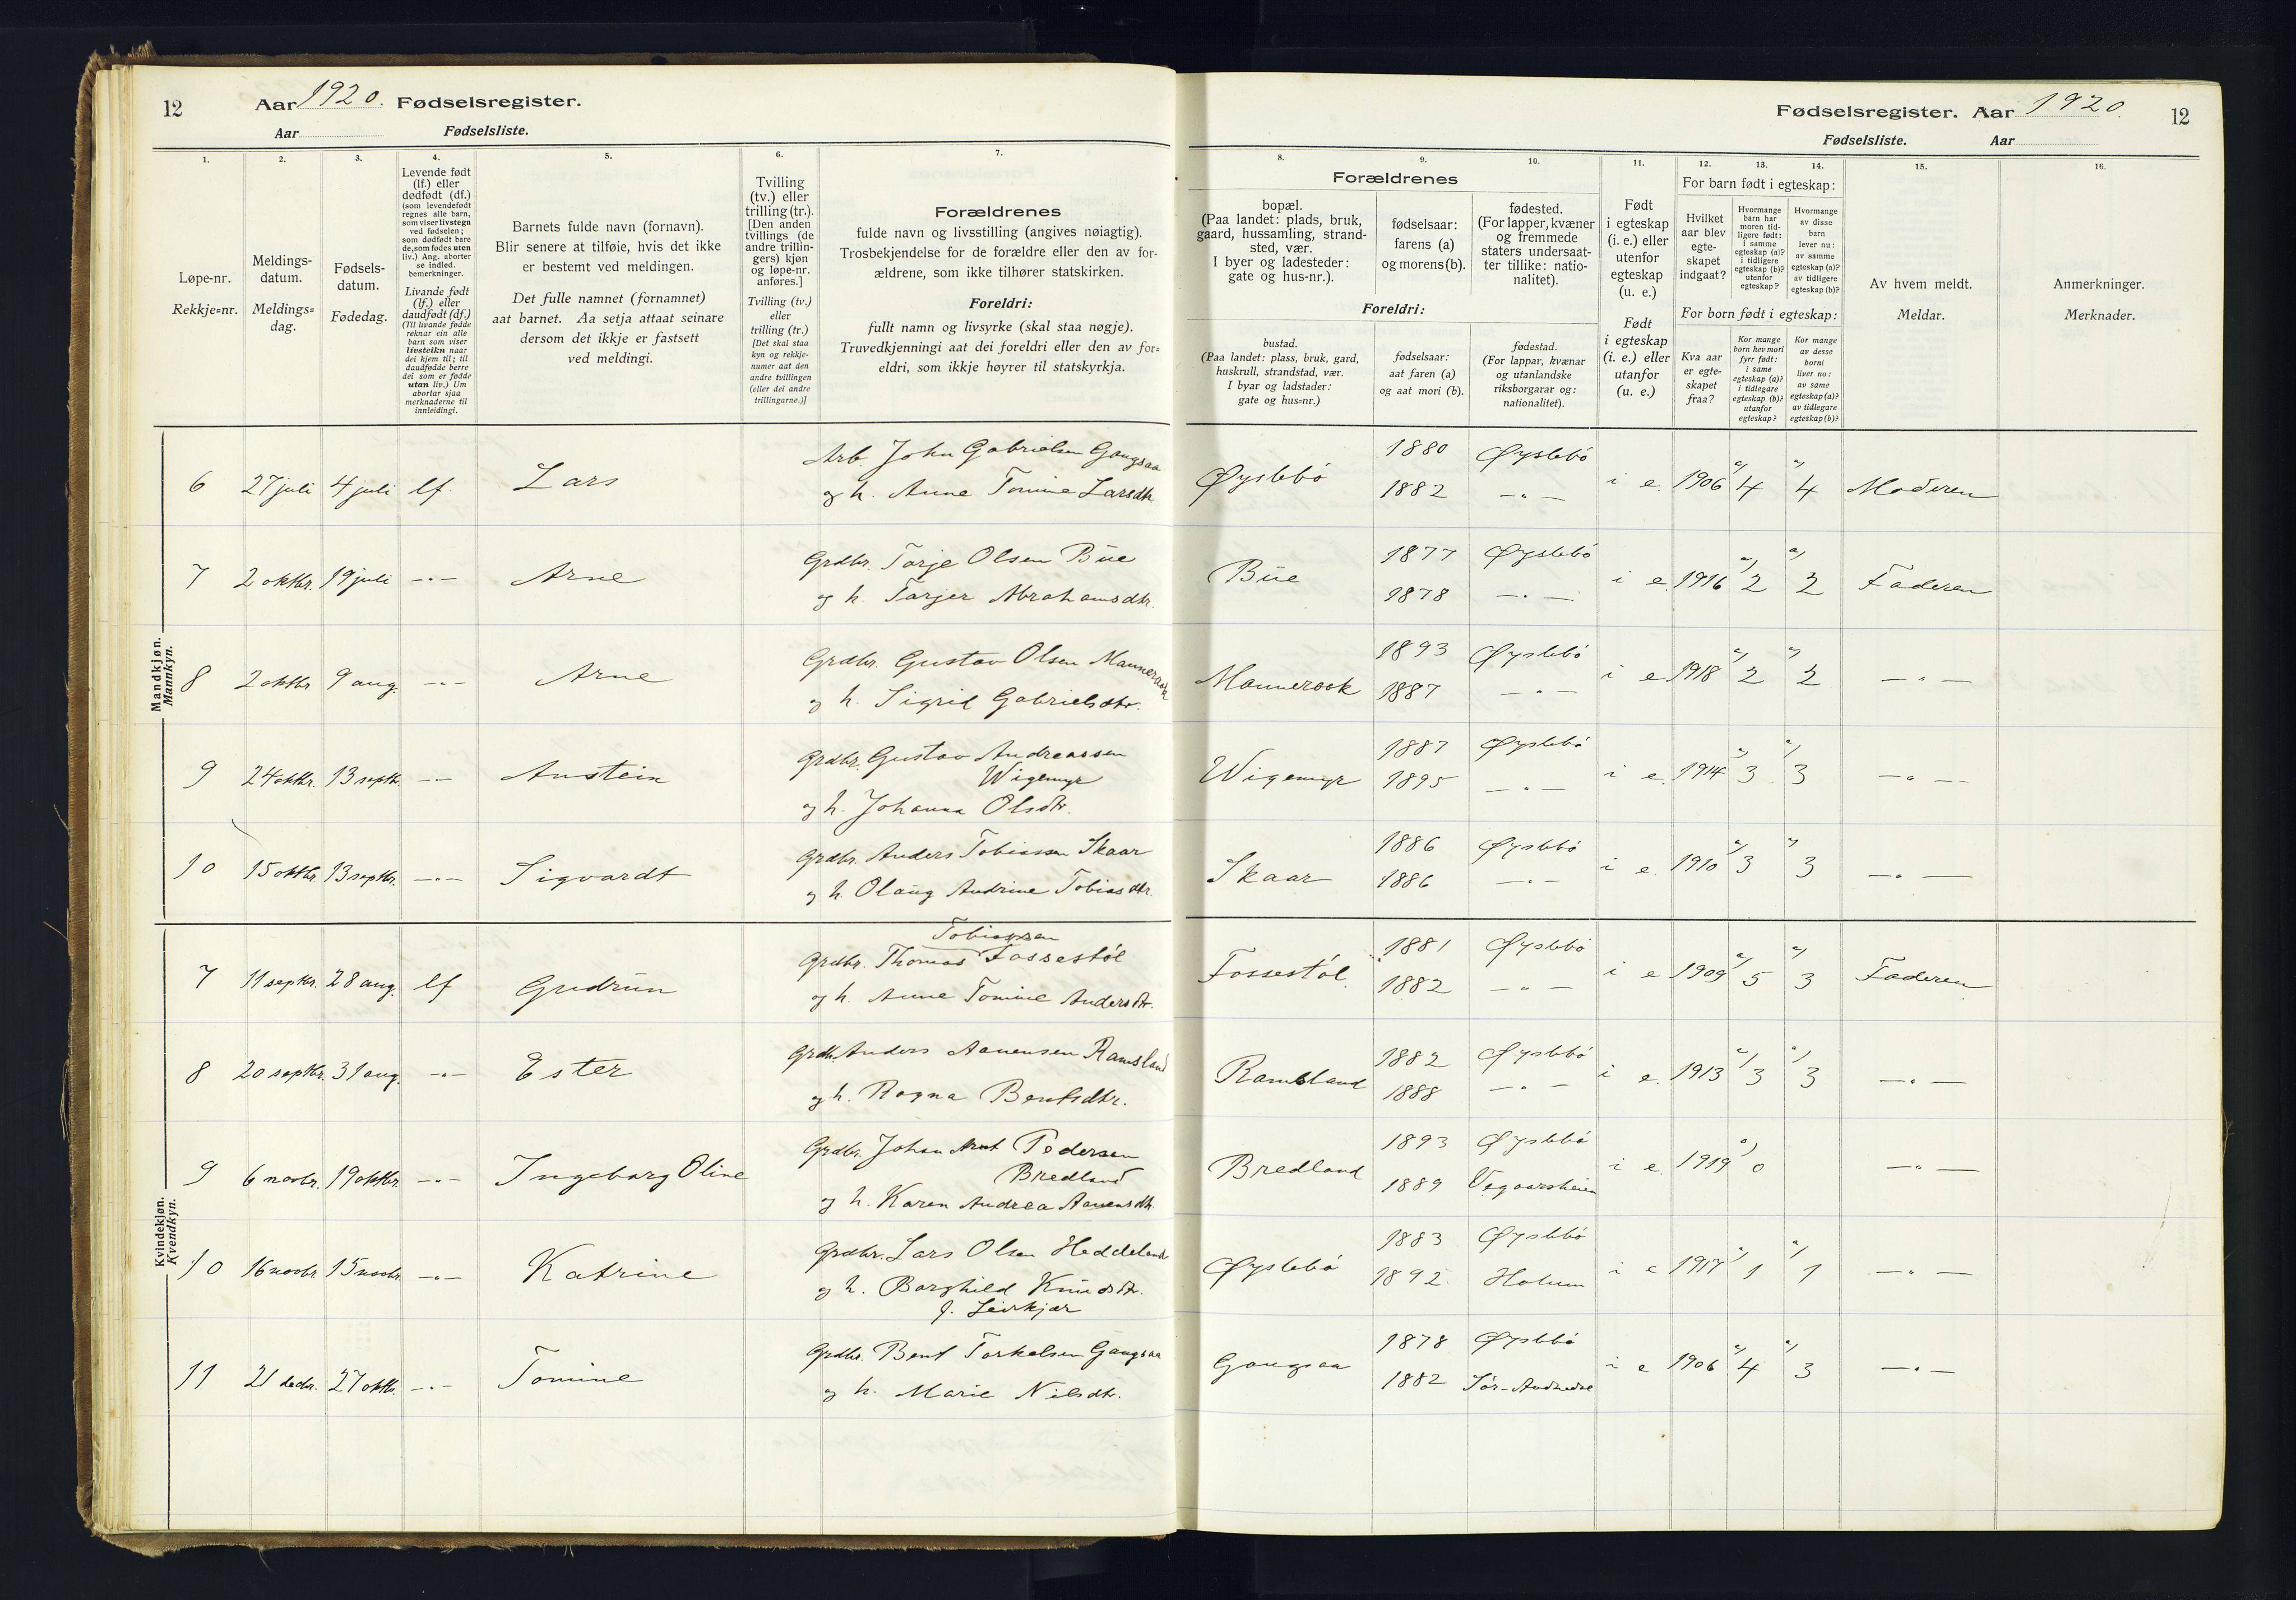 12 Aar 1920. Fødselsregister.
Aar Fødselsliste.
Fødselsregister. Aar 1920. 12
Fødselsliste. Aar
1. 2. 3. 4. 5. 6. 7. 8. 9. 10. 11. 12. 13. 14. 15. 16.
Løpe-nr.
Rekkje=nr.
Meldings-
datum.
Meldings=
dag.
Fødsels-
datum.
Fødedag.
Levende født
(lf.) eller
dødfødt (df.)
(som levendefødt
regnes alle barn,
som viser livstegn
ved fødselen;
som dødfødt bare
de, som fødes uten
liv.) Ang. aborter
se indled.
bemerkninger.
Livande født
(lf.) eller
daudfødt (df.)
(Til livande fødde
reknar ein alle
barn som viser
livsteikn naar
dei kjem til; til
daudfødde berre
dei som er fødde
utan liv.) Um
abortar sjaa
merknaderne til
innleidingi.
Barnets fulde navn (fornavn).
Blir senere at tilføie, hvis det ikke
er bestemt ved meldingen.
Det fulle namnet (fornamnet)
aat barnet. Aa setja attaat seinare
dersom det ikkje er fastsett
ved meldingi.
Tvilling
(tv.) eller
trilling (tr.).
[Den anden
tvillings (de
andre trillin-
gers) kjøn
og løpe-nr.
anføres.]
Tvilling (tv.)
eller
trilling (tr.)
[Det skal staa
kyn og rekkje-
numer aat den
andre tvillingen
(eller dei andre
trillingarne.)]
Forældrenes
fulde navn og livsstilling (angives nøiagtig).
Trosbekjendelse for de forældre eller den av for-
ældrene, som ikke tilhører statskirken.
Foreldri:
fullt namn og livsyrke (skal staa nøgje).
Truvedkjenningi aat dei foreldri eller den av for=
eldri, som ikkje høyrer til statskyrkja.
Forældrenes
bopæl.
(Paa landet: plads, bruk,
gaard, hussamling, strand-
sted, vær.
I byer og ladesteder:
gate og hus-nr.).
fødselsaar:
farens (a)
og morens (b).
fødested.
(For lapper, kvæner
og fremmede
staters undersaat-
ter tillike: natio-
nalitet).
Foreldri:
bustad.
(Paa landet: plass, bruk, gard,
huskrull, strandstad, vær.
I byar og ladstader:
gate og hus=nr.)
fødselsaar:
aat faren (a)
og aat mori (b).
fødestad.
(For lappar, kvænar
og utanlandske
riksborgarar og:
nationalitet).
Født
i egteskap
(i. e.) eller
utenfor
egteskap
(u. e.)
Født
i egteskap
(i. e.) eller
utanfor
(u. e.)
For barn født i egteskap:
Hvilket
aar blev
egte-
skapet
indgaat?
Hvormange
barn har
moren tid-
ligere født:
i samme
egteskap (a)?
i tidligere
egteskap (b)?
utenfor
egteskap?
Hvormange
av disse
barn
lever nu:
av samme
egteskap (a)?
av tidligere
egteskap (b)?
For born født i egteskap:
Kva aar
er egte=
skapet
fraa?
Kor mange
born hev mori
fyrr født:
i same
egteskap (a)?
i tidlegare
egteskap (b)?
utanfor
egteskap?
Kor mange
av desse
borni
liver no:
av same
egteskap (a)?
av tidlegare
egteskap (b)?
Av hvem meldt.
Meldar.
Anmerkninger.
Merknader.
Mandkjøn.
Mannkyn.
6 27 juli 4 juli lf. Lars Arb. John Gabrielsen Gangsaa Øyslebö 1880 Øyslebö i e. 1906 a) 4 a) 4 Moderen
og h. Anne Tomine Larsdtr. 1882 — " —
7 2 oktbr. 19 juli — " — Arne Grdbr. Torje Olsen Büe Büe 1877 Øyslebö i e 1916 a) 2 a) 2 Faderen
og h. Tarjer Abrahamsdtr. 1878 — " —
8 2 oktbr 9 aug. — " — Arne Grdbr. Gustav Olsen Mannerask Mannerask 1893 Øyslebö i e 1918 a) 2 a) 2 — " —
og h. Sigrid Gabrielsdtr. 1887 — " —
9 24 oktbr. 13 septbr. — " — Austein Grdbr. Gustav Andreassen Wigemyr 1887 Øyslebö i e. 1914 a) 3 a) 3 — " —
Wigemyr
og h. Johanna Olsdtr. 1895 — " —
10 15 oktbr. 13 septbr. — " — Sigvardt Grdbr. Anders Tobiassen Skaar Skaar 1886 Øyslebö i e. 1910 a) 3 a) 3 — " —
og h. Olaüg Andrine Tobiasdtr. 1886 — " —
Kvindekjøn.
Kvendkyn.
Tobiassen
7 11 septbr. 28 aug. lf Gudrün Grdbr. Thomas Fossestöl Fossestöl 1881 Øyslebö i e 1909 a) 5 a) 3 Faderen
og h. Anne Tomine Andersdtr. 1882 — " —
8 20 septbr. 31 aug. — " — Ester Grdbr. Anders Aanensen Ramsland Ramsland 1882 Øyslebö i e. 1913 a) 3 a) 3 — " —
og h. Ragna Bentsdtr. 1888 — " —
9 6 novbr. 19 oktbr. — " — Ingeborg Oline Grdbr. Johan Arnt Pedersen Bredland 1893 Øyslebö i e. 1919 a) 0 — " —
Bredland
og h. Karen Andrea Aanensdtr. 1889 Vegaarsheien
10 16 novbr 15 novbr. — " — Katrine Grdbr. Lars Olsen Heddeland Øyslebö 1883 Øyslebö i e 1917 a) 1 a) 1 — " —
og h. Borghild Knüdsdtr. 1892 Holum
f. Leirkjær
11 21 decbr. 27 oktbr. — " — Tomine Grdbr. Bent Torkelsen Gangsaa Gangsaa 1878 Øyslebö i e 1906 a) 4 a) 3 — " —
og h. Marie Nilsdtr. 1882 Sör-Audnedal